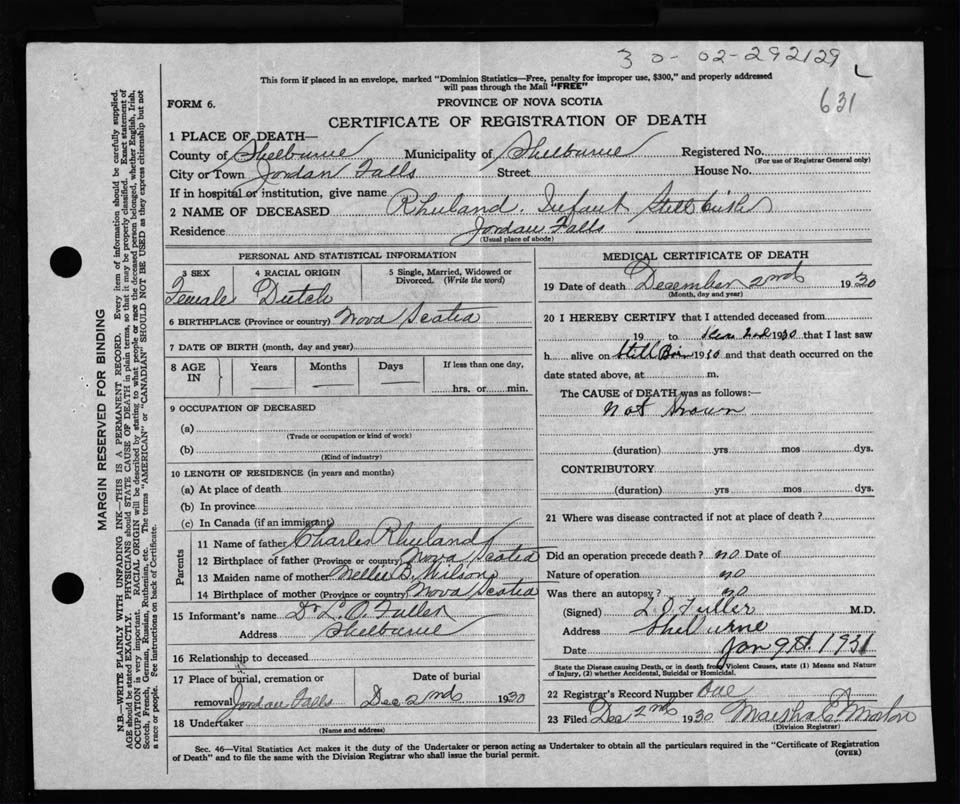 30-02-292129
L
This form if placed in an envelope, marked "Dominion Statistics—Free, penalty for improper use, $300," and properly addressed
will pass through the Mail "FREE"
631
FORM 6.
PROVINCE OF NOVA SCOTIA
CERTIFICATE OF REGISTRATION OF DEATH
1 PLACE OF DEATH—
County of Shelburne Municipality of Shelburne Registered No.
(For use of Registrar General only)
City or Town Jordan Falls Street House No.
If in hospital or institution, give name
2 NAME OF DECEASED Rhuland. Infant Still birth
Residence Jordan Falls
(Usual place of abode)
PERSONAL AND STATISTICAL INFORMATION
3 SEX 4 RACIAL ORIGIN 5 Single, Married, Widowed or Divorced. (Write the word)
Female Dutch
6 BIRTHPLACE (Province or country) Nova Scotia
7 DATE OF BIRTH (month, day and year)
8 AGE IN Years Months Days If less than one day,
hrs. or min.
9 OCCUPATION OF DECEASED
(a)
(Trade or occupation or kind of work)
(b)
(Kind of industry)
10 LENGTH OF RESIDENCE (in years and months)
(a) At place of death
(b) In province
(c) In Canada (if an immigrant)
Parents
11 Name of father Charles Rhuland
12 Birthplace of father (Province or country) Nova Scotia
13 Maiden name of mother Nellie B. Wilson
14 Birthplace of mother (Province or country) Nova Scotia
15 Informant's name Dr L. O. Fuller
Address Shelburne
16 Relationship to deceased
17 Place of burial, cremation or Date of burial
removal Jordan Falls Dec 2nd 1930
18 Undertaker
(Name and address)
MEDICAL CERTIFICATE OF DEATH
19 Date of death December 2nd 1930
(Month, day and year)
20 I HEREBY CERTIFY that I attended deceased from
19 to 2nd 1930 that I last saw
h alive on Still Born 1930 and that death occurred on the
date stated above, at m.
The CAUSE of DEATH was as follows:—
not known
(duration) yrs mos dys.
CONTRIBUTORY
(duration) yrs mos dys.
21 Where was disease contracted if not at place of death?
Did an operation precede death? no Date of
Nature of operation no
Was there an autopsy? no
(Signed) L O Fuller M.D.
Address Shelburne
Date Jan 9th 1931
State the Disease causing Death, or in death from Violent Causes, state (1) Means and Nature
of Injury, (2) whether Accidental, Suicidal or Homicidal.
22 Registrar's Record Number One
23 Filed Dec 2nd 1930
(Division Registrar)
Sec. 46—Vital Statistics Act makes it the duty of the Undertaker or person acting as Undertaker to obtain all the particulars required in the "Certificate of Registration
of Death" and to file the same with the Division Registrar who shall issue the burial permit. (OVER)
MARGIN RESERVED FOR BINDING
N.B.—WRITE PLAINLY WITH UNFADING INK—THIS IS A PERMANENT RECORD. Every item of information should be carefully supplied.
AGE should be stated EXACTLY. PHYSICIANS should STATE CAUSE OF DEATH in plain terms, so that it may be properly classified. Exact statement of
OCCUPATION is very important. RACIAL ORIGIN will be described by stating to what people or race the deceased person belonged, whether English, Irish,
Scotch, French, German, Russian, Ruthenian, etc. The terms "AMERICAN" or "CANADIAN" SHOULD NOT BE USED as they express citizenship but not
a race or people. See instructions on back of Certificate.